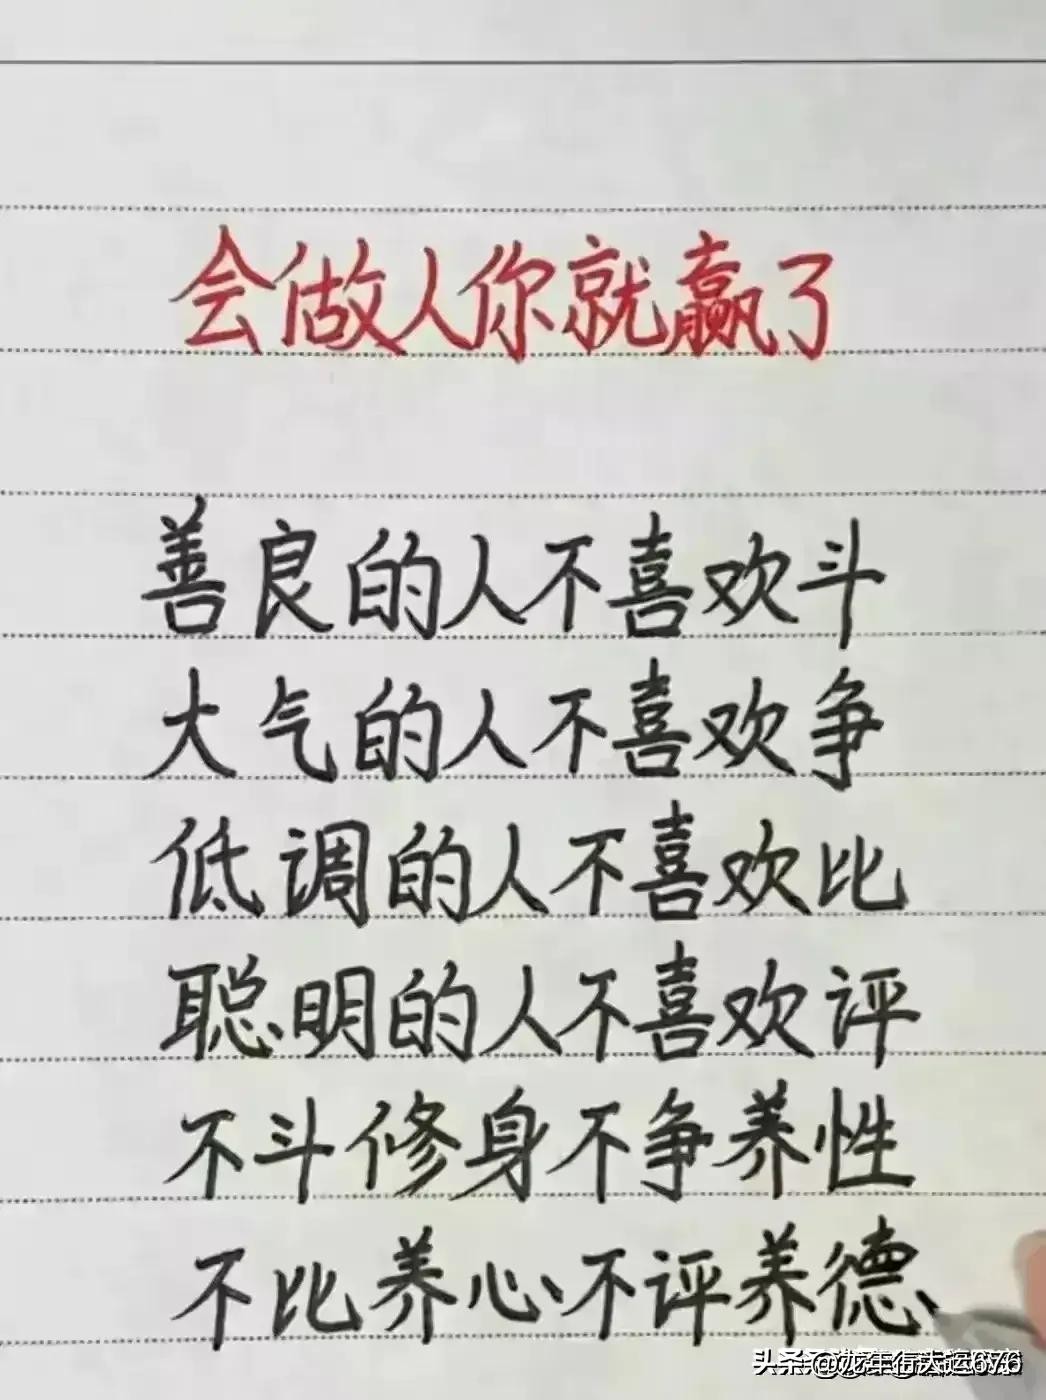 会做人你就赢了
善良的人不喜欢斗
大气的人不喜欢争
低调的人不喜欢比
聪明的人不喜欢评
不斗修身不争养性
不比养心不评养德
头条@龙年行大运676